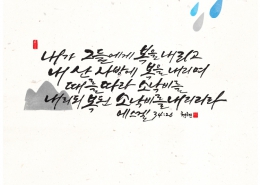 내가 그들에게 복을 내리고
내 산 사방에 복을 내리며
때를 따라 소낙비를
내리되 복된 소낙비를 내리리라
에스겔 34:26